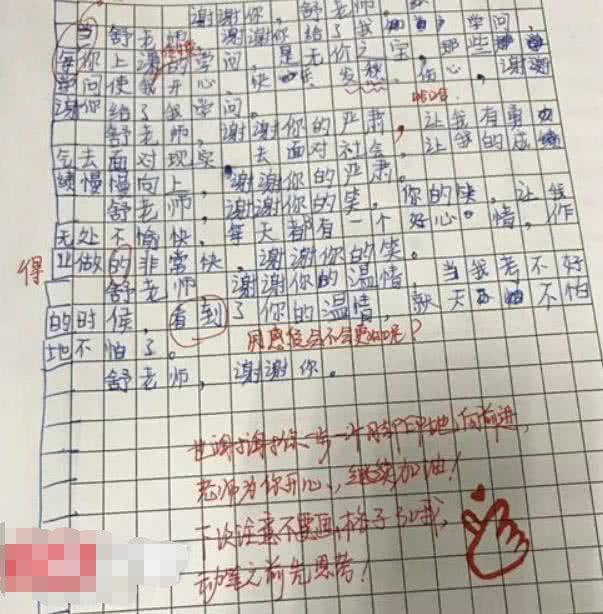 谢谢你，舒老师。
舒老师，谢谢你给了我学问，
每你上课的学问，是无价之宝，那些
学问使我开心、快乐、发秋、伤心，谢谢
谢你给了我学问。
舒老师，谢谢你的严肃，让我有勇
气去面对现实，去面对社会，让我的成绩
慢慢向上，谢谢你的严肃。
舒老师，谢谢你的笑，你的快，让我
无处不愉快，每天都有一个好心情，作
业做的非常快，谢谢你的笑。
得
舒老师，谢谢你的温情，当我老不好
的时侯，看到了你的温情，就天不怕
地不怕了。
用感役会不会更好呢？
舒老师，谢谢你。
也谢谢你一步一个脚印地向前进，
老师为你开心，继续加油！
下次注意不要画格子以我，
抄写之前先思考！